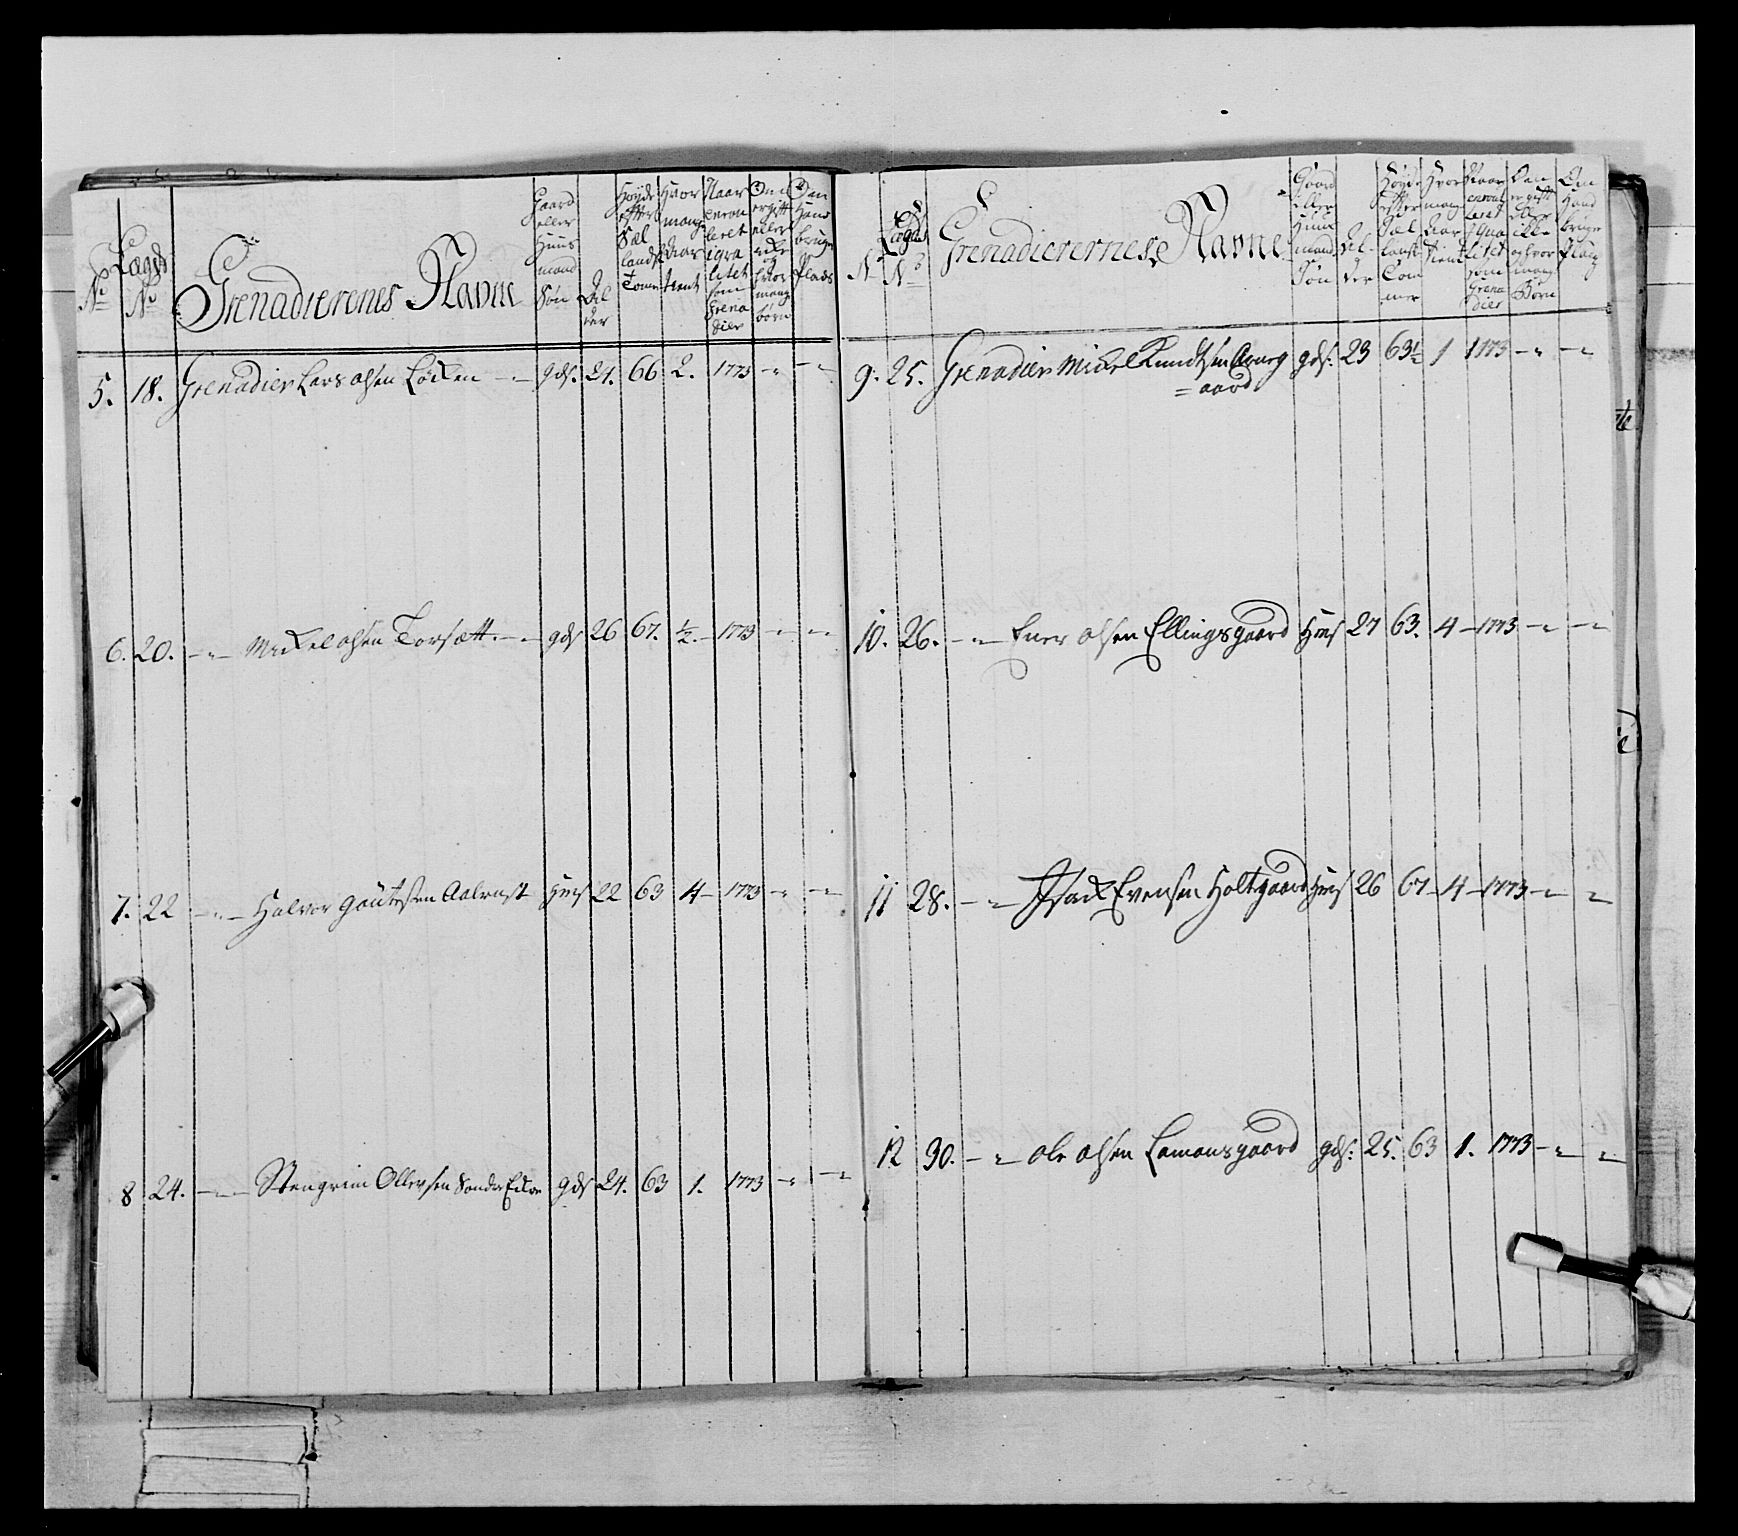 No
Lægds No
Grenadierernes Navne
Gaard eller Huus mands Søn
Alder
Høyde efter Sællands Tomer
Hvor mange Aar tient
Naar enroulleret i qualitet som Grenadier
Om er gift eller ikke og hvor mange børn
Om Hand bruger Plads
5. 18. Grenadier Lars Olsen Løcken gds. 21. 66 2. 1773
6. 20. Mickel Olsen Torsætt gds 26 67. ½ 1773
7. 22 Halvor Goutesen Aalrust Hms 22 63 4 1773
8 24. Stengrim Ollevsen Sondre Eckre gds 24. 63 1. 1773
No
Lægds No
Grenadierernes Navne
Gaard eller Huus mands Søn
Alder
Høyde efter Sællansk Tommer
Hvor mange Aar tient
Naar enroulerat i qualitet som Grenadier
Om er gift eller ikke og hvor mange Børn
Om Hand bruger Plads
9. 25. Grenadier Mickel Knudtsen Arneg gds. 23 63½ 1 1773
=aard
10. 26. Ener Olsen Ellingsgaard Hms 27 63. 4 1773
11 28. Isack Evensen Holtgaard Hms 26 67 4 1773
12 30. Ole Olsen Lemansgaard gds. 25. 63 1. 1773